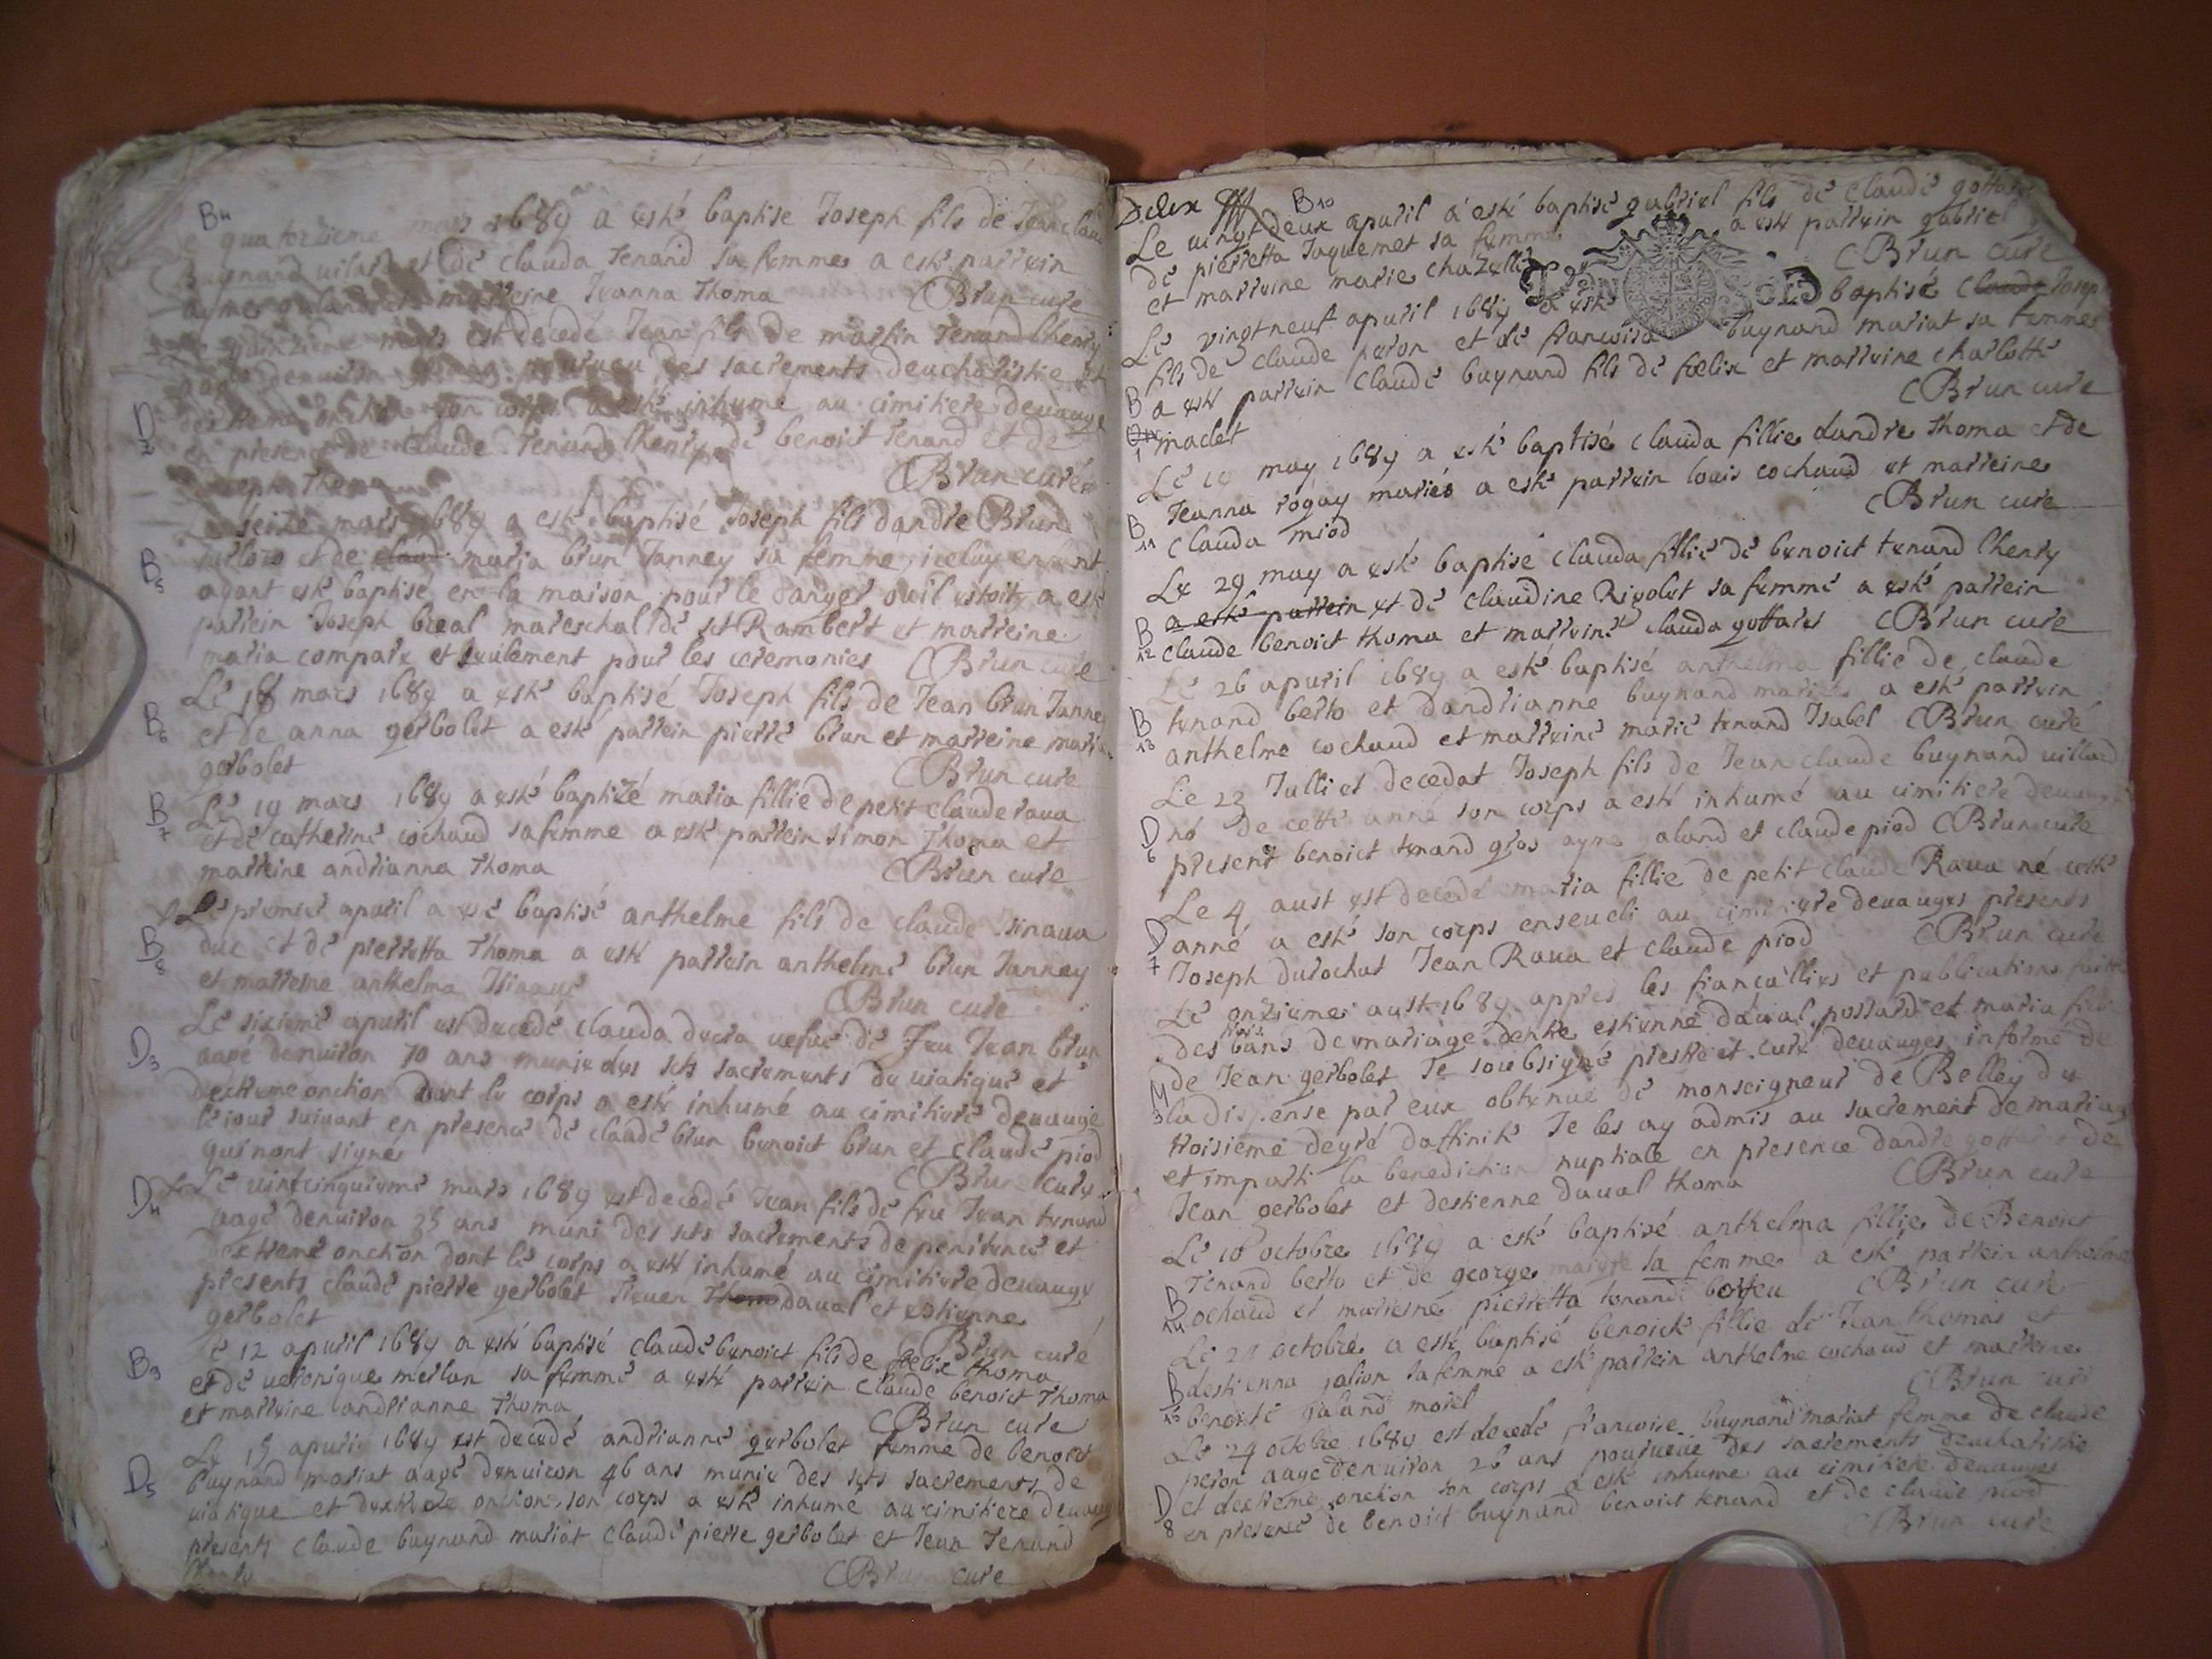 B4
quatorzieme mars 1689 a esté baptise Joseph fils de Jean claude
Buynand uilard et de clauda Tenand sa femme a esté parrein
ayme galand et marreine Jeanna Thoma CBrun cure
mars est decedé Jean fils de martin Tenand lhenry
aagé denuiron pourueu des sacrements deucharistie et
dextreme onction son corps a esté inhumé au cimitiere deuauge
D2
en presence de claude Tenand lhenry de benoict Tenand et de
Joseph Thoma CBrun curé
seize mars 1689 a esté baptisé Joseph fils dandre Brun
et de claud maria brun Janney sa femme iceluy enfant
B5
ayant esté baptisé en la maison pour le danger ouil estoit a esté
parrein Joseph breal mareschal de st Rambert et marreine
maria compare et seulement pour les ceremonies CBrun cure
Le 18 mars 1689 a esté baptisé Joseph fils de Jean brun Janney
B6
et de anna gerbolet a esté parrein pierre brun et marreine maria
gerbolet CBrun cure
B7
Le 19 mars 1689 a esté baptizé maria fillie de petit claude raua
et de catherine cochaud sa femme a esté parrein simon Thoma et
marreine andrianna Thoma CBrun cure
Le premier apuril a esté baptisé anthelme fils de claude Isinaua
B8
duc et de pierretta Thoma a esté parrein anthelme brun Janney
et marreine anthelma Isinaue CBrun cure
D3
Le sixieme apuril est decedé clauda ducra uefue de feu Jean brun
aagé denuiron 70 ans munie des sts sacrements de uiatique et
dextreme onction dont le corps a esté inhumé au cimitiere deuauge
le iour suiuant en presence de claude brun benoict brun et claude piod
qui nont signé CBrun cure
D4
Le uintcinquieme mars 1689 est decedé Jean fils de feu Jean tenand
aagé denuiron 35 ans muni des sts sacrements de penitence et
dextreme onction dont le corps a esté inhumé au cimitiere deuauge
presents claude pierre gerbolet Thoma daual et estienne
gerbolet CBrun curé
B9
Le 12 apuril 1689 a esté baptisé claude benoict fils de foelix thoma
et de ueronique merlan sa femme a esté parrein claude benoict Thoma
et marreine andrianne Thoma CBrun cure
Le 15 apuril 1689 est decedé andrianne gerbolet femme de benoict
D5
buynand mariat aagé denuiron 46 ans munie des sts sacrements de
uiatique et dextreme onction son corps a esté inhumé au cimitiere deuauge
presents claude buynand mariat claude pierre gerbolet et Jean Tenand
lhenry CBrun cure
Deux B10
Le uingt deux apuril a esté baptisé gabriel fils de claude goffare
de pierretta Jaquemet sa femme a esté parrein gabriel
et marreine marie chazelle CBrun cure
Le vingtneuf apuril 1689 a esté baptisé claude Josep
fils de claude peron et de francoisa buynand mariat sa femme
B a esté parrein claude buynand fils de foelix et marreine charlotte
maclet CBrun cure
Le 10 may 1689 a esté baptisé clauda fillie dandre Thoma et de
B11 Jeanna rogay mariés a esté parrein louis cochaud et marreine
clauda miod CBrun cure
Le 29 may a esté baptisé clauda fillie de benoict tenand lhenry
B12 a esté parrein et de claudine Rigolet sa femme a esté parrein
claude benoict thoma et marreine clauda goffares CBrun cure
Le 26 apuril 1689 a esté baptisé anthelma fillie de claude
B13 tenand berto et dandrianne buynand mariés a esté parrein
anthelme cochaud et marreine marie tenand Isabel CBrun curé
Le 23 Julliet decedat Joseph fils de Jean claude buynand uillard
D6 né de cette anné son corps a esté inhumé au cimitiere deuauge
present benoict tenand gros ayme galand et claude piod CBrun cure
Le 4 aust est decedé maria fillie de petit claude Raua né cette
D7 anné a esté son corps enseueli au cimitiere deuauges presents
Joseph durochat Jean Raua et claude piod CBrun cure
Le onzieme aust 1689 appres les fianca'llies et publications faitte
des trois bans de mariage dentre estienne daual possard et maria fille
M3 de Jean gerbolet Je soubsigné prestre et curé deuauges informé de
la dispense par eux obtenue de monseigneur de Belley du
troisieme degré daffinité Je les ay admis au sacrement de mariage
et imparti la benediction nuptiale en presence dandre goffare de
Jean gerbolet et destienne daual thoma CBrun cure
Le 18 octobre 1689 a esté baptisé anthelma fillie de Benoict
B14 Tenand berto et de george maigre sa femme a esté parrein anthelme
ochaud et marreine pierretta tenand borfeu CBrun cure
Le 21 octobre a esté baptisé benoiste fillie de Jean thomas et
B15 destienna jalion sa femme a esté parrein anthelme cochaud et marreine
benoite galand morel CBrun curé
Le 24 octobre 1689 est decedé francoise buynand mariat femme de claude
peron aagé denuiron 26 ans pourueue des sacrements deucharistie
D8 et dextreme onction son corps a esté inhumé au cimitiere deuauges
en presence de benoict buynand benoict tenand et de claude piod
CBrun cure